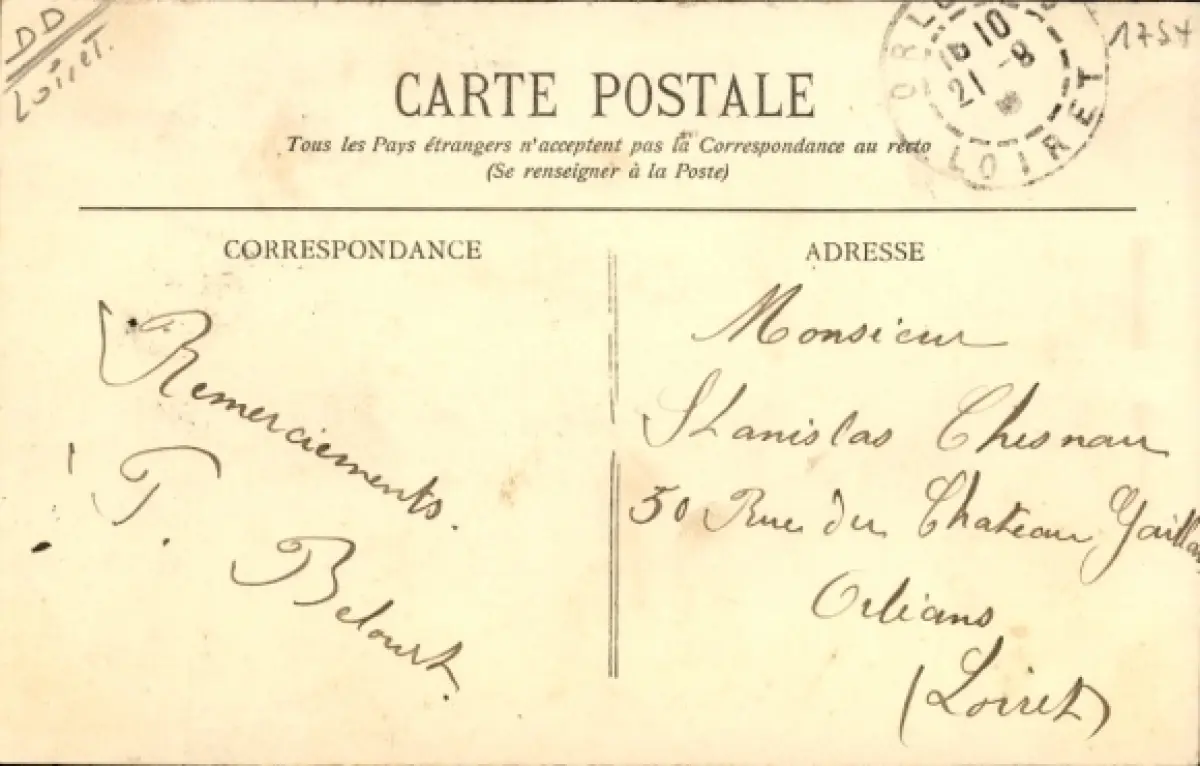 DD
Loiret.
1754
15 10
21 -8
LOIRET
CARTE POSTALE
Tous les Pays étrangers n'acceptent pas la Correspondance au recto
(Se renseigner à la Poste)
CORRESPONDANCE
Remerciements.
T. Belourt.
ADRESSE
Monsieur
Stanislas Chesnau
50 Rue du Chateau Gaillar
Orléans
(Loiret)